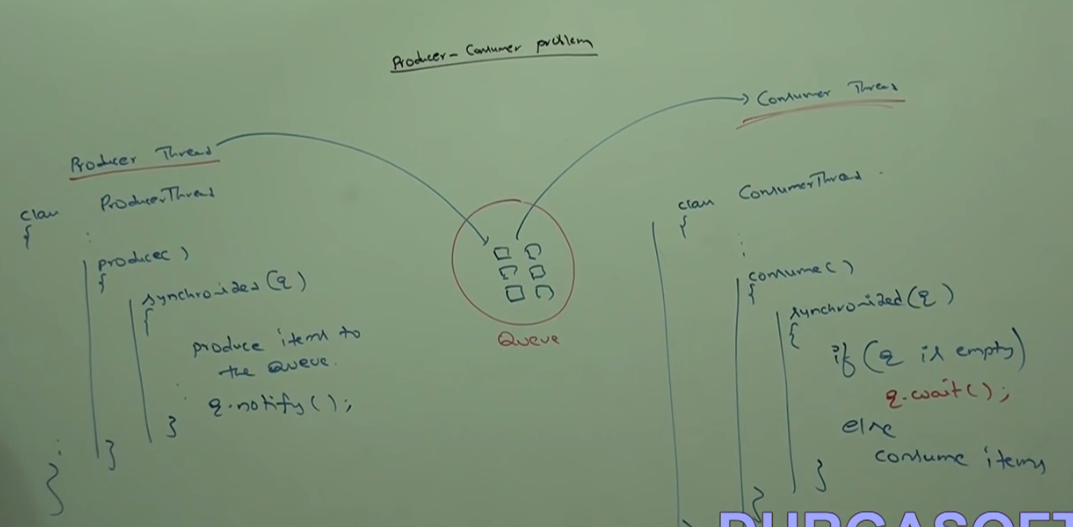 Producer-Consumer problem
Producer Thread
class ProducerThread
{
:
produce()
{
synchronized(q)
{
produce items to
the Queue.
q.notify();
}
}
}
Queue
Consumer Thread
class ConsumerThread
{
:
consume()
{
synchronized(q)
{
if (q is empty)
q.wait();
else
consume items
}
}
}
DURGASOFT